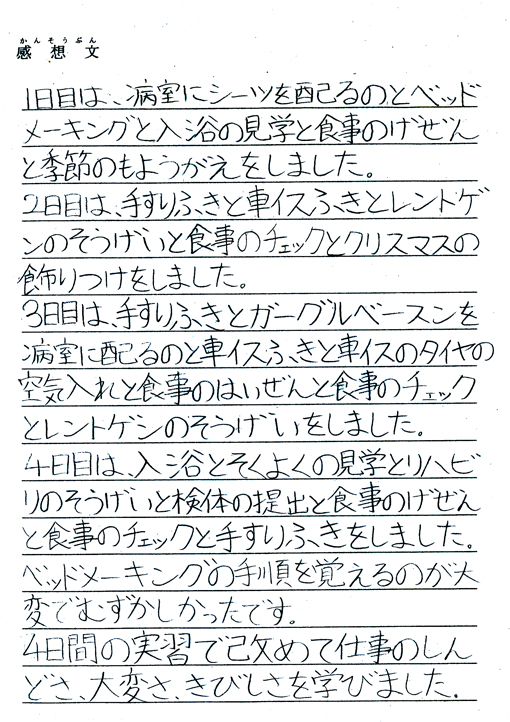 かんそうぶん
感想文
1日目は、病室にシーツを配るのとベッド
メーキングと入浴の見学と食事のげぜん
と季節のもようがえをしました。
2日目は、手すりふきと車イスふきとレントゲ
ンのそうげいと食事のチェックとクリスマスの
飾りつけをしました。
3日目は、手すりふきとガーグルベースンを
病室に配るのと車イスふきと車イスのタイヤの
空気入れと食事のはいぜんと食事のチェック
とレントゲンのそうげいをしました。
4日目は、入浴とそくよくの見学とリハビ
リのそうげいと検体の提出と食事のげぜん
と食事のチェックと手すりふきをしました。
ベッドメーキングの手順を覚えるのが大
変でむずかしかったです。
4日間の実習で改めて仕事のしん
どさ、大変さ、きびしさを学びました。